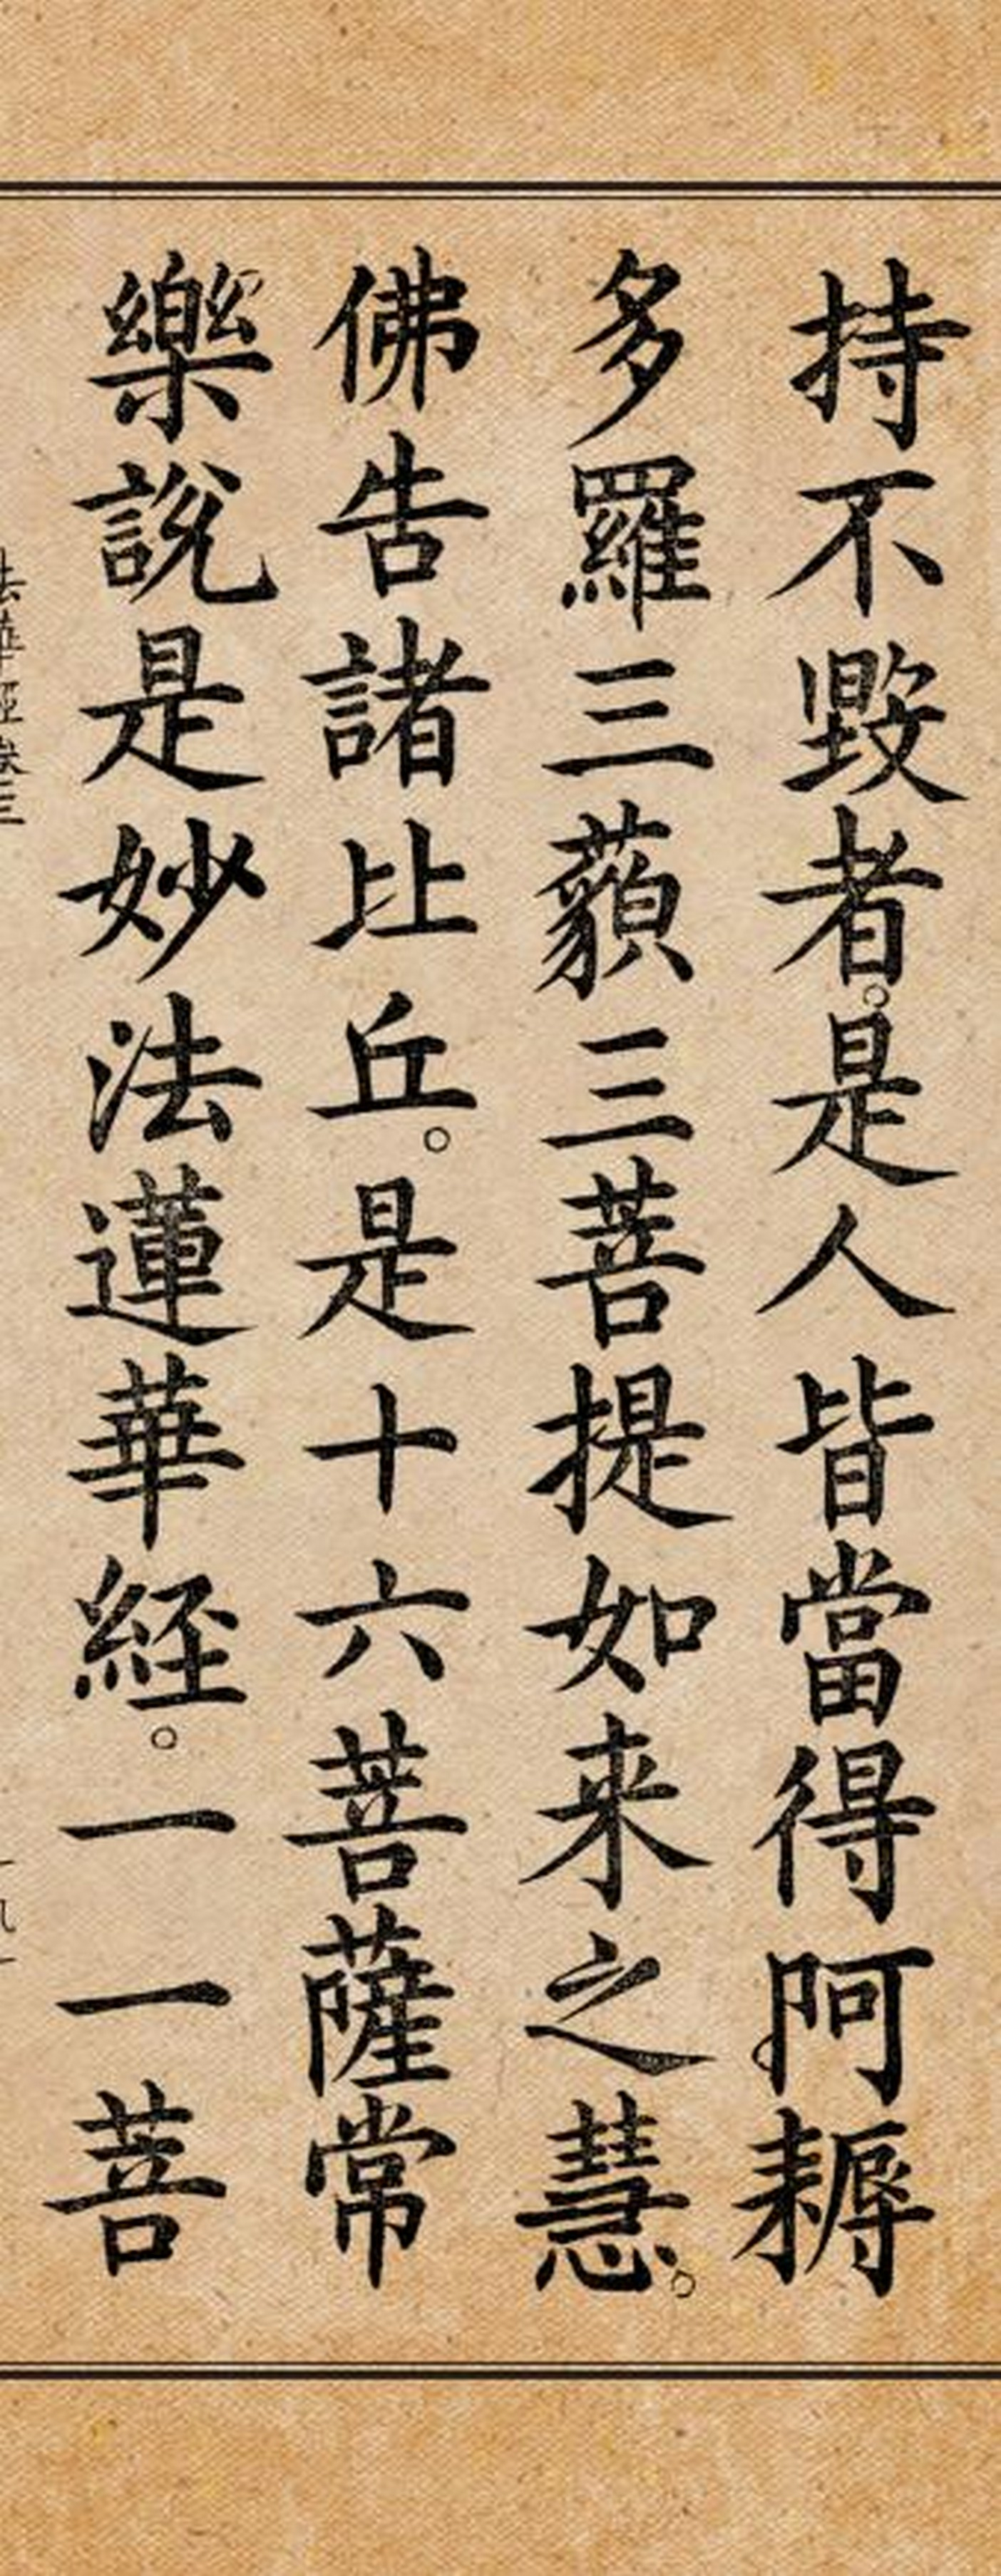 持不毀者。是人皆當得阿耨
多羅三藐三菩提如来之慧。
佛告諸比丘。是十六菩薩常
樂說是妙法蓮華経。一一菩
法華經卷三